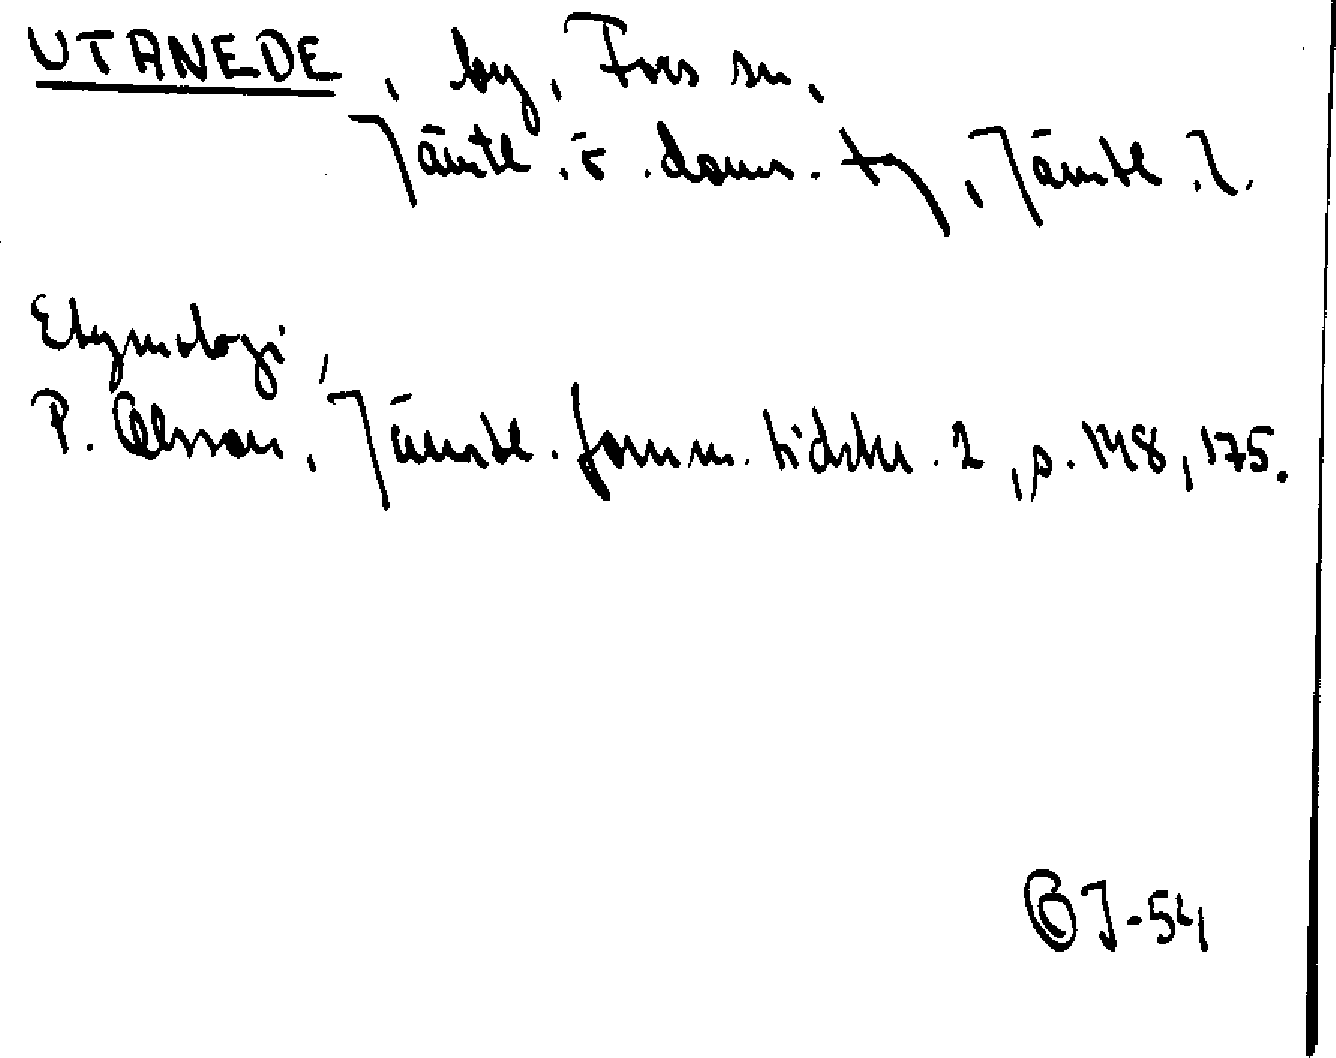 UTANEDE, by, Fors sn,
Jämtl. ö. doms. tg, Jämtl. l.
Etymologi,
P. Olsson, Jämtl. fornm. tidskr. 2, s. 148, 175.
OJ-54